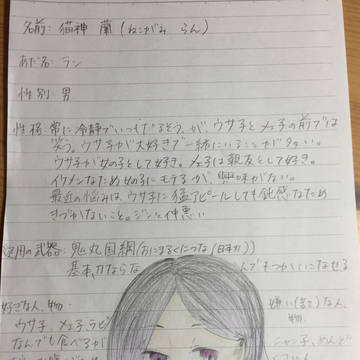 名前: 猫神 蘭 (ねこがみ らん)
あだ名: ラン
性別: 男
性格: 常に冷静でいつもだるそう。が、ウサ子とメェ子の前では
笑う。ウサ子が大好きで一緒にいることが多い。
ウサ子が女の子として好き。メェ子は親友として好き。
イケメンなため女の子にモテるが、興味がない。
最近の悩みは、ウサ子に猛アピールしても鈍感なため
きづかないこと。ジンと仲悪い
用の武器: 鬼丸国綱(おにまるくにつな(日本刀))
基本刀なら な んでもつかいこなせる
好きな人、物 嫌い(苦手)な人、
物.
ウサ子、メェ子、ラビ
なんでも食べるが ニャン子、めんど